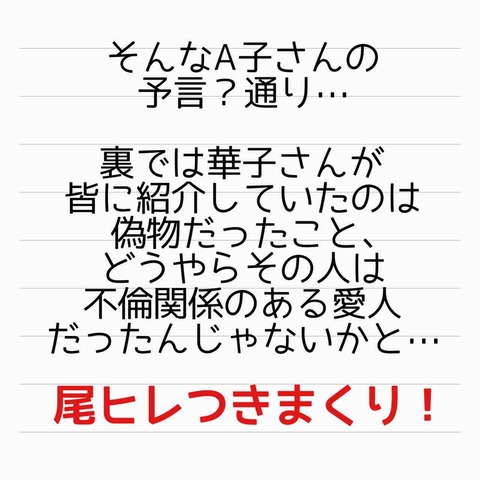 そんなA子さんの
予言？通り…
裏では華子さんが
皆に紹介していたのは
偽物だったこと、
どうやらその人は
不倫関係のある愛人
だったんじゃないかと…
尾ヒレつきまくり！